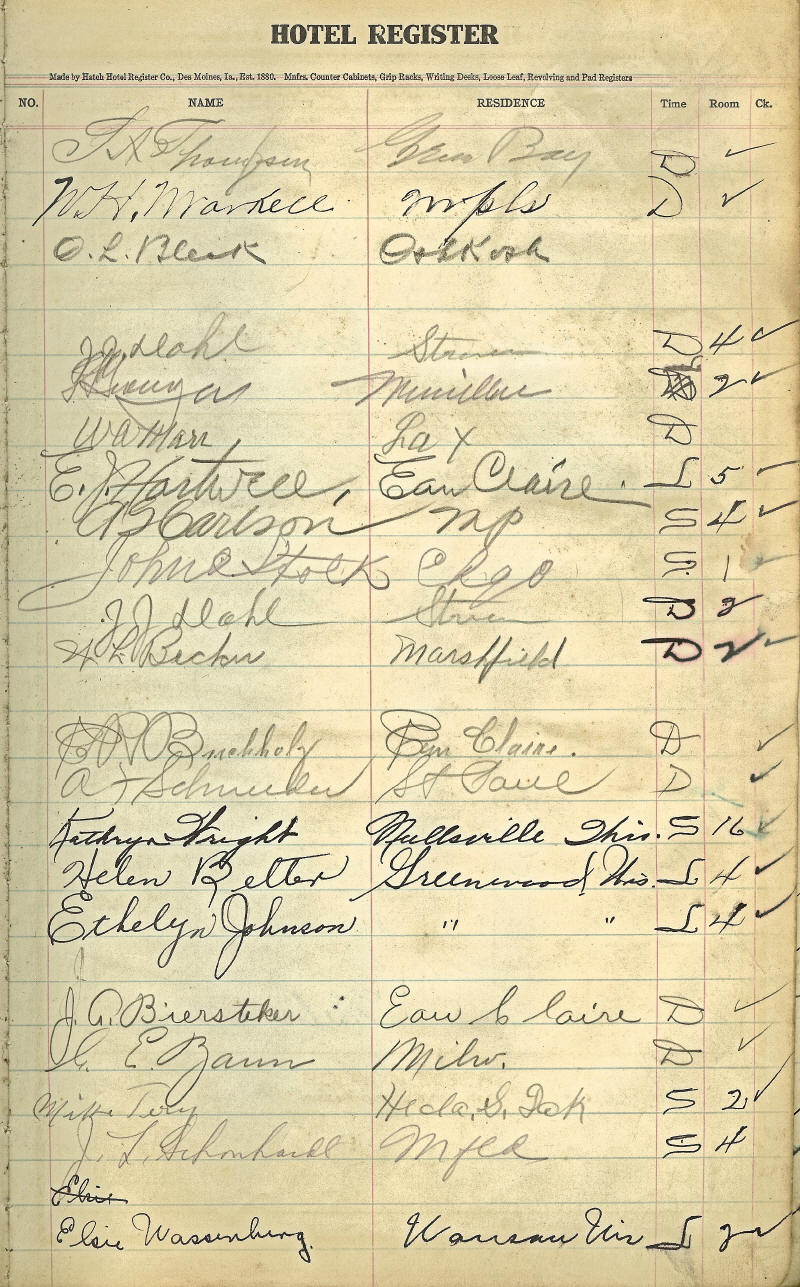 HOTEL REGISTER
Made by Hatch Hotel Register Co., Des Moines, Ia., Est. 1880. Mnfrs. Counter Cabinets, Grip Racks, Writing Desks, Loose Leaf, Revolving and Pad Registers
NO. NAME RESIDENCE Time Room Ck.
Thompson Green Bay D ✓
W. H. Markell Mpls D ✓
O. L. Bleck Oshkosh
J J Dahl D 4 ✓
2 ✓
W A Marr La X D
E. J. Hartwell, Eau Claire. L 5 ✓
Carlson MP S 4 ✓
John Stolk Chgo S 1 ✓
J J Dahl D 2
H L Becker Marshfield D 2 ✓
Buchholz Eau Claire. D ✓
A J Schneider St Paul D ✓
Kathryn Wright Neillsville Wis. S 16 ✓
Helen Better Greenwood, Wis. L 4 ✓
Ethelyn Johnson " " L 4 ✓
J. A. Biersteker Eau Claire D ✓
E. Baum Milw. D ✓
Mike Tery Hecla, S. Dak S 2 ✓
J. L. Schonhardt Mfld S 4
Elsie
Elsie Wassenberg. Wausau Wis L 2 ✓